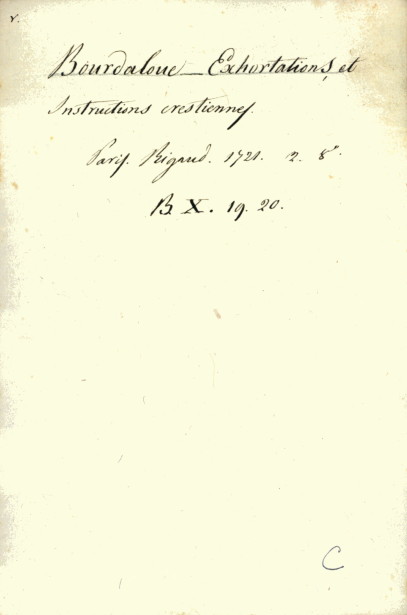 v.
Bourdaloue — Exhortations, et
Instructions crestiennes.
Paris. Rigaud. 1721. 2. 8°.
B X. 19. 20.
C